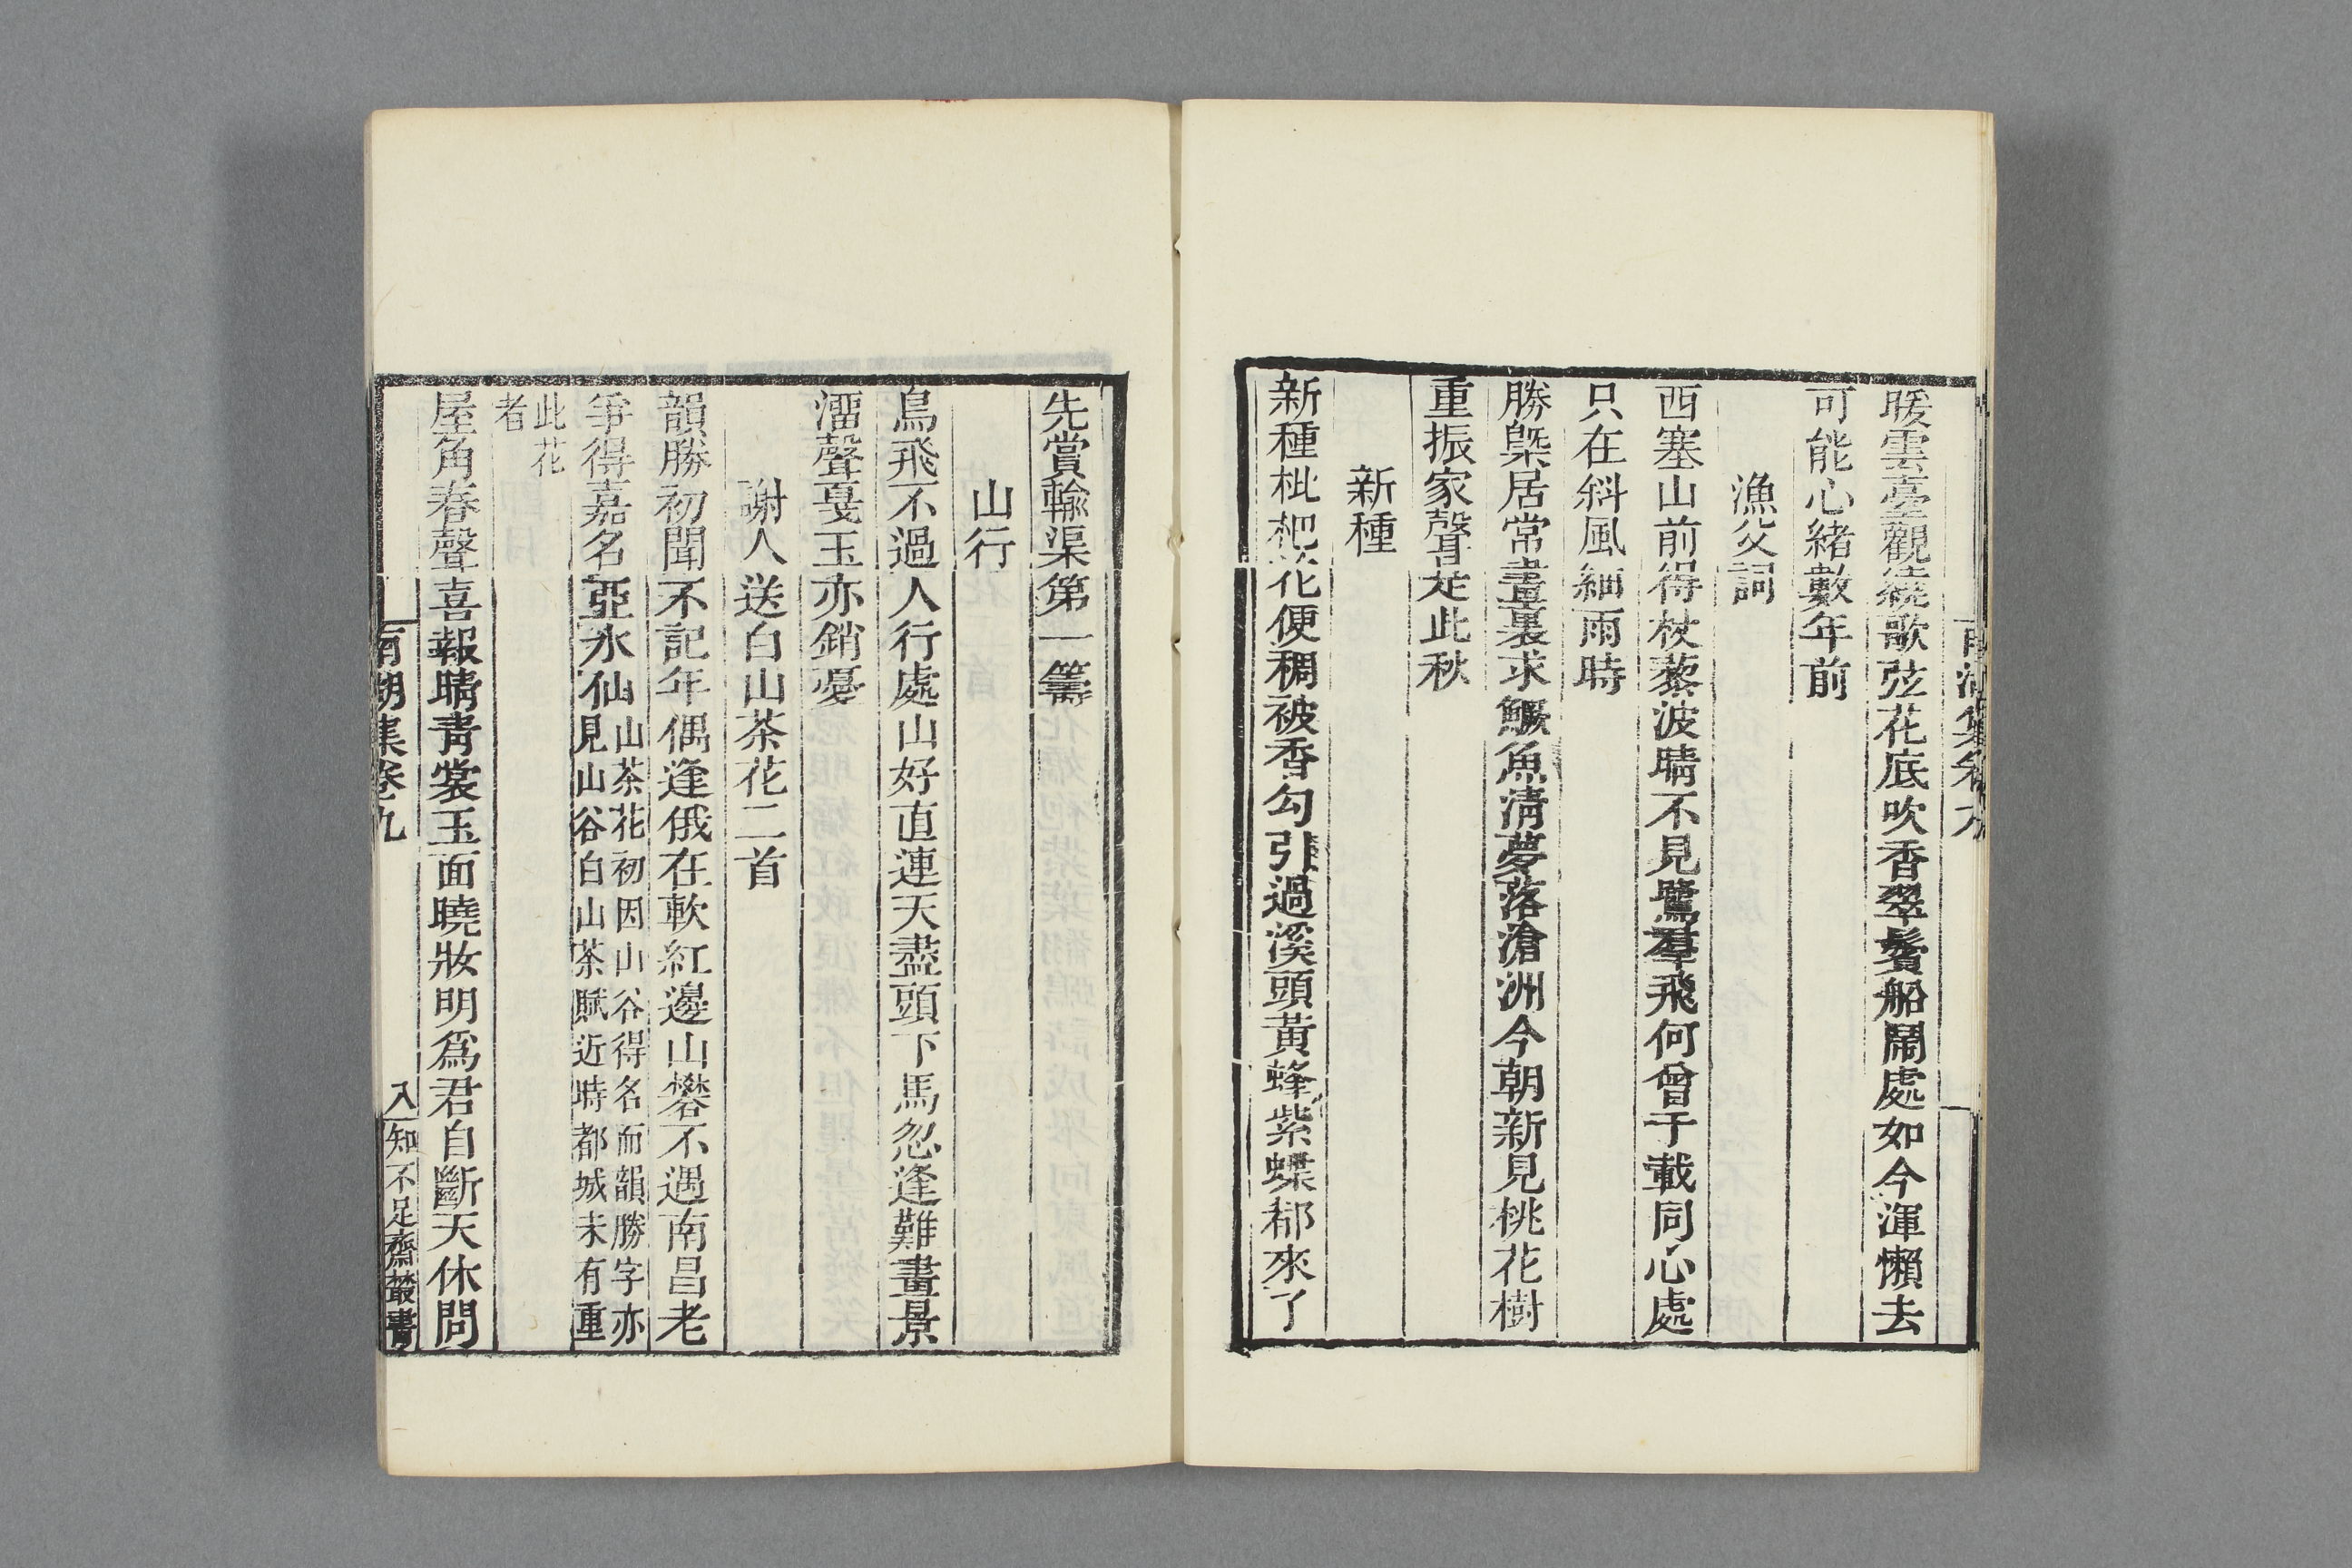 暖雲臺觀繞歌弦花底吹香翠鬢船鬧處如今渾懶去
可能心緒數年前
漁父詞
西塞山前得杖藜波晴不見鷺羣飛何曾于載同心處
只在斜風細雨時
勝槩居常畫裏求鱖魚淸夢落滄洲今朝新見桃花樹
重振家聲是此秋
新種
新種枇杷花便稠被香勾引過溪頭黃蜂紫蝶都來了
先賞輸渠第一籌
山行
鳥飛不過人行處山好直連天盡頭下馬忽逢難畫景
溜聲戛玉亦銷憂
謝人送白山茶花二首
韻勝初聞不記年偶逢俄在軟紅邊山礬不遇南昌老
爭得嘉名亞水仙
山茶花初因山谷得名而韻勝字亦
見山谷白山茶賦近時都城未有重
此花
者
屋角春聲喜報晴靑裳玉面曉妝明爲君自斷天休問
南湖集卷九
入
知不足齋叢書